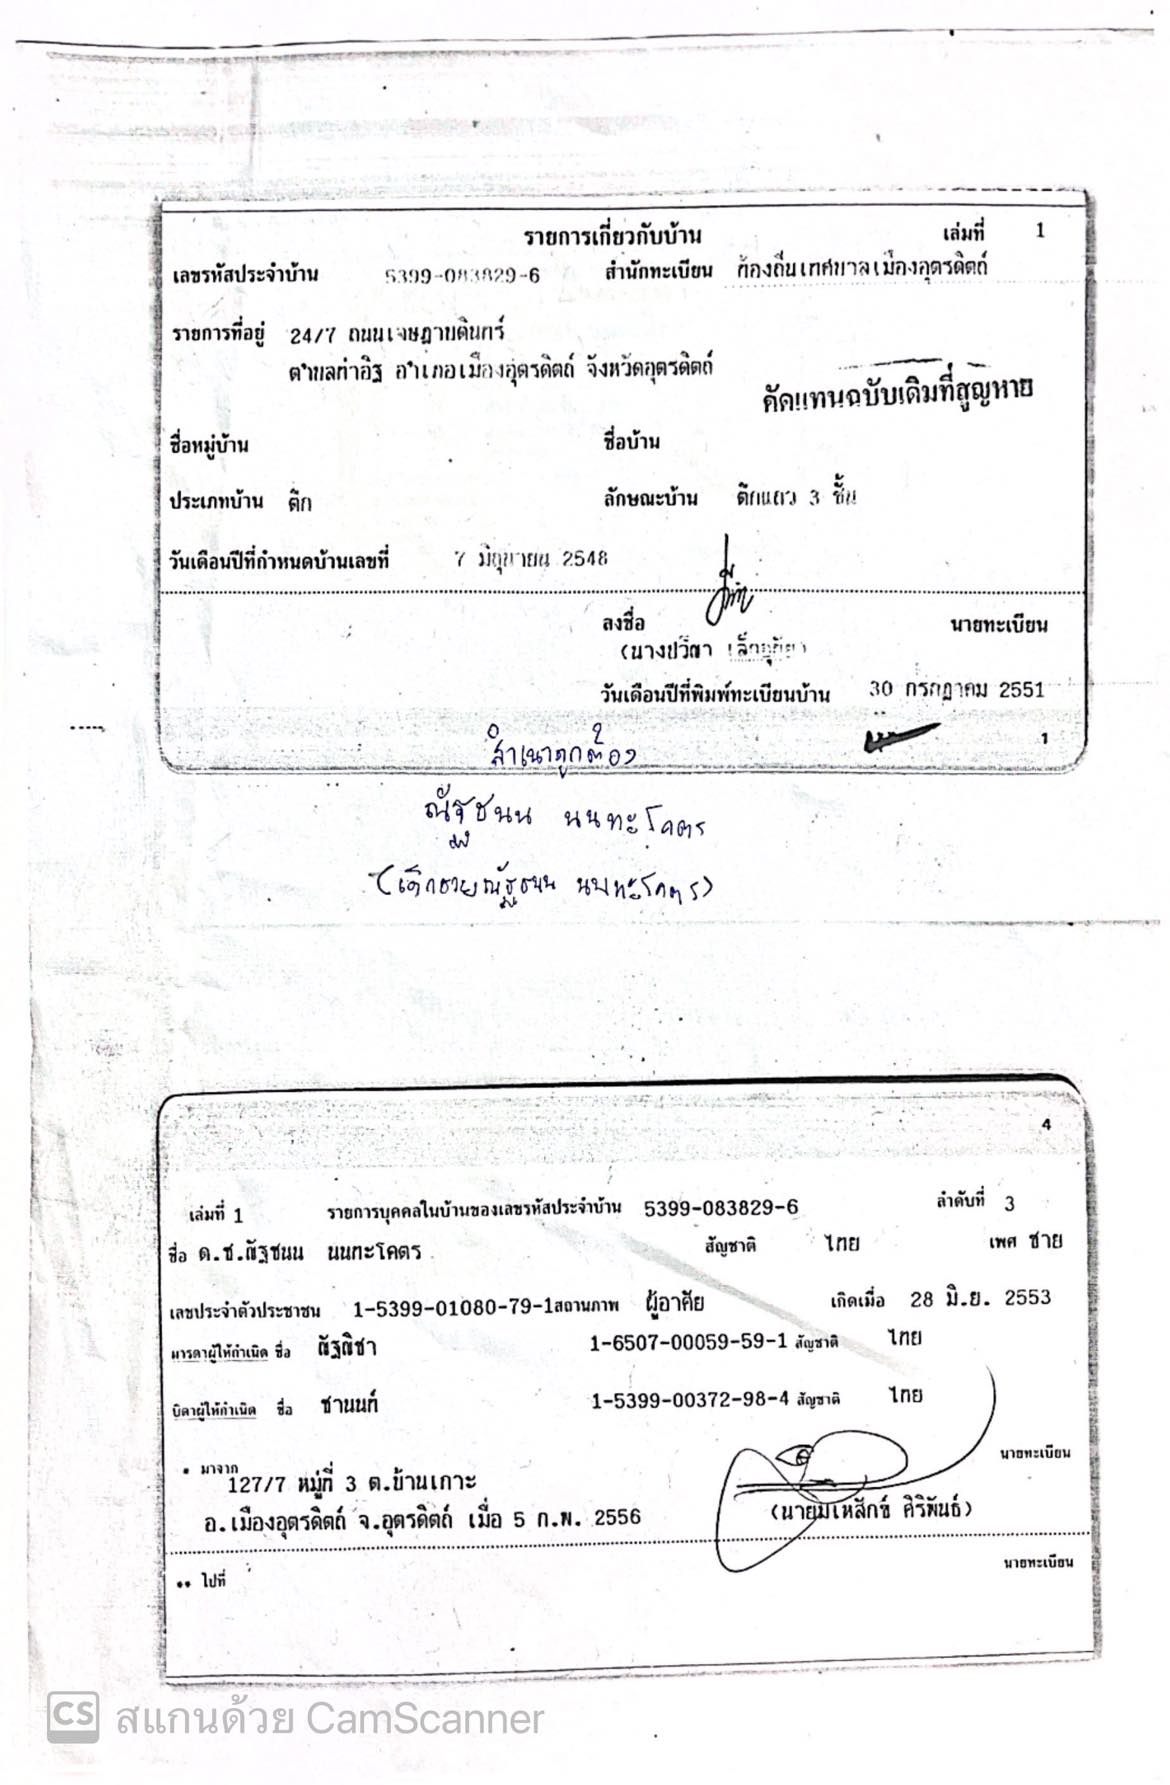 รายการเกี่ยวกับบ้าน เล่มที่ 1
เลขรหัสประจำบ้าน 5399-083829-6 สำนักทะเบียน ท้องถิ่นเทศบาลเมืองอุตรดิตถ์
รายการที่อยู่ 24/7 ถนนเจษฎาบดินทร์
ตำบลท่าอิฐ อำเภอเมืองอุตรดิตถ์ จังหวัดอุตรดิตถ์
คัดแทนฉบับเดิมที่สูญหาย
ชื่อหมู่บ้าน ชื่อบ้าน
ประเภทบ้าน ตึก ลักษณะบ้าน ตึกแถว 3 ชั้น
วันเดือนปีที่กำหนดบ้านเลขที่ 7 มิถุนายน 2548
ลงชื่อ นายทะเบียน
(นางปวีณา
วันเดือนปีที่พิมพ์ทะเบียนบ้าน 30 กรกฎาคม 2551
1
สำเนาถูกต้อง
ณัฐชนน นนทะโคตร
(เด็กชายณัฐชนน นนทะโคตร)
4
เล่มที่ 1 รายการบุคคลในบ้านของเลขรหัสประจำบ้าน 5399-083829-6 ลำดับที่ 3
ชื่อ ด.ช.ณัฐชนน นนทะโคตร สัญชาติ ไทย เพศ ชาย
เลขประจำตัวประชาชน 1-5399-01080-79-1 สถานภาพ ผู้อาศัย เกิดเมื่อ 28 มิ.ย. 2553
มารดาผู้ให้กำเนิด ชื่อ ณัฐณิชา 1-6507-00059-59-1 สัญชาติ ไทย
บิดาผู้ให้กำเนิด ชื่อ ชานนท์ 1-5399-00372-98-4 สัญชาติ ไทย
* มาจาก นายทะเบียน
127/7 หมู่ที่ 3 ต.บ้านเกาะ
อ.เมืองอุตรดิตถ์ จ.อุตรดิตถ์ เมื่อ 5 ก.พ. 2556 (นายมเหสักข์ ศิริพันธ์)
** ไปที่ นายทะเบียน
CS สแกนด้วย CamScanner